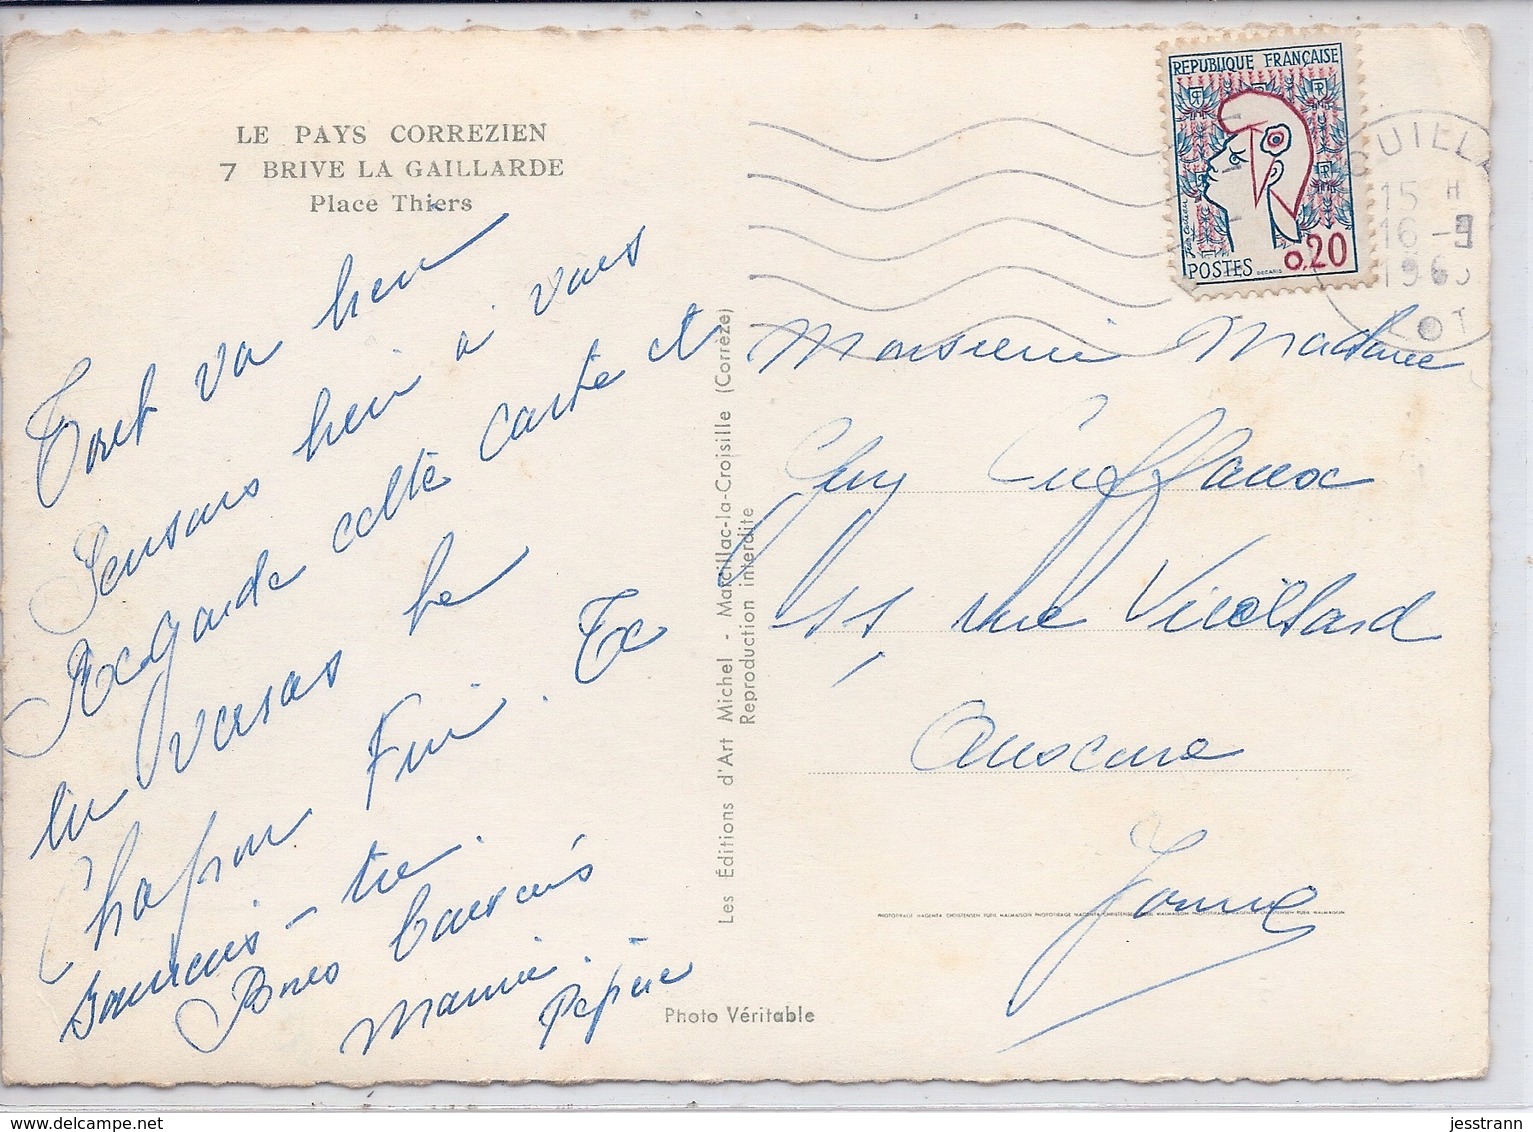 LE PAYS CORREZIEN
7 BRIVE LA GAILLARDE
Place Thiers
Tout va bien
Pensons bien à vous
Regarde cette carte et
tu verras le
Chapon Fin. Te
souviens-tu.
Bons baisers
Mamie.
Pépère
Les Éditions d'Art Michel - Marcillac-la-Croisille (Corrèze)
Reproduction interdite
Photo Véritable
REPUBLIQUE FRANÇAISE
POSTES
0,20
DECARIS
15 H
16 -9
LOT
Monsieur Madame
Guy
rue Vieillard
Auxerre
Yonne
delcampe.net
jesstrann